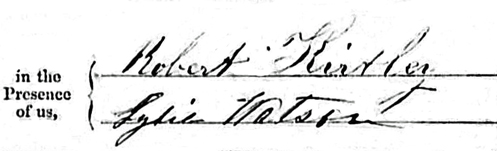 in the
Presence
of us,
Robert Kirtley
Lydia Watson